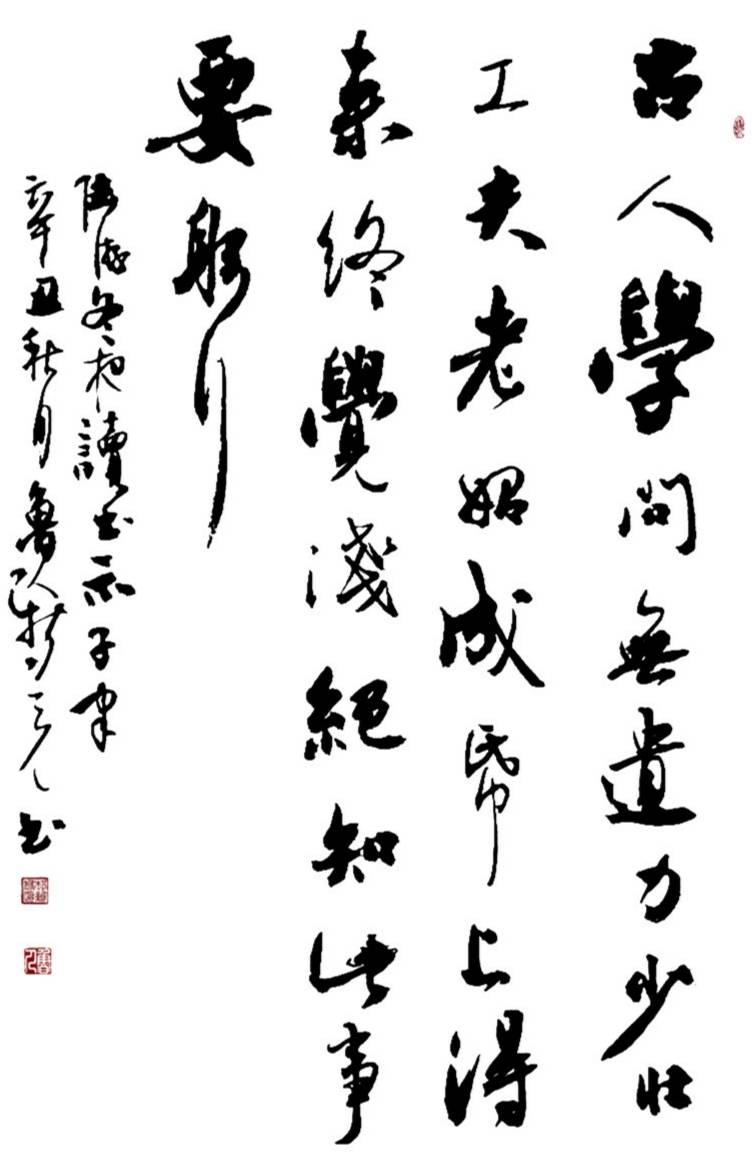 古人學問無遺力少壯
工夫老始成帋上得
来終覺淺絕知此事
要躬行
陸游冬夜讀書示子聿
辛丑秋月魯 書